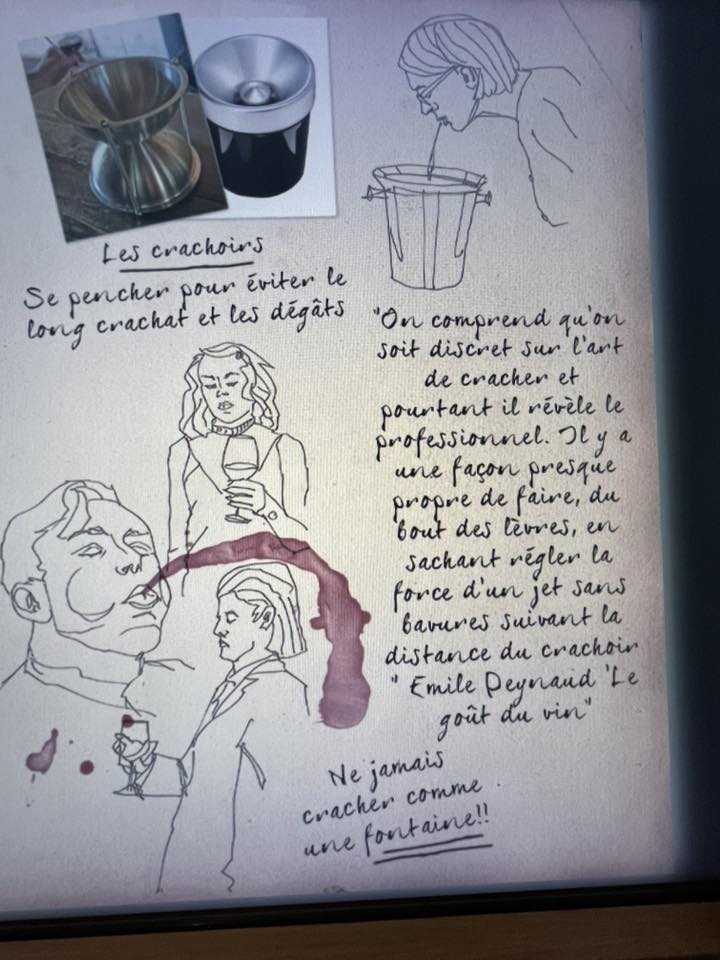 Les crachoirs
Se pencher pour éviter le
long crachat et les dégâts
"On comprend qu'on
soit discret sur l'art
de cracher et
pourtant il révèle le
professionnel. Il y a
une façon presque
propre de faire, du
bout des lèvres, en
sachant régler la
force d'un jet sans
bavures suivant la
distance du crachoir
" Emile Peynaud 'Le
goût du vin"
Ne jamais
cracher comme
une fontaine!!